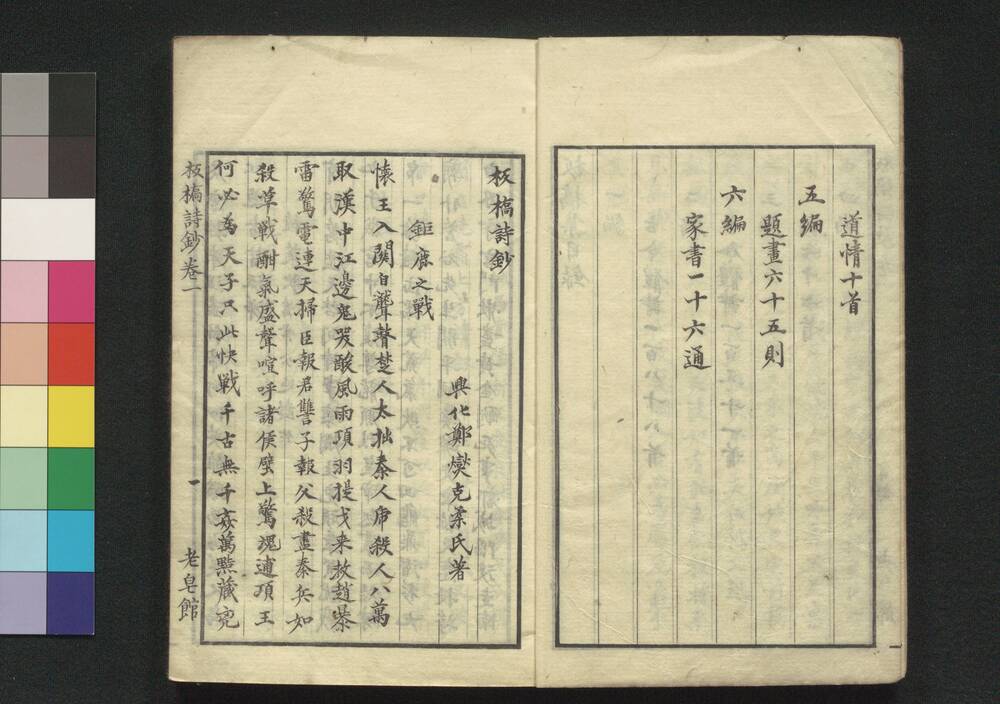 道情十首
五編
題畫六十五則
六編
家書一十六通
板橋詩鈔
興化鄭燮克柔氏著
鉅鹿之戰
懷王入關自聾瞽楚人太拙秦人虎殺人八萬
取漢中江邊鬼哭酸風雨項羽提戈来救趙暴
雷驚電連天掃臣報君讐子報父殺盡秦兵如
殺草戰酣氣盛聲喧呼諸侯壁上驚魂逋項王
何必為天子只此快戰千古無千姦萬黠藏兇
板橋詩鈔卷一
一
老皂館